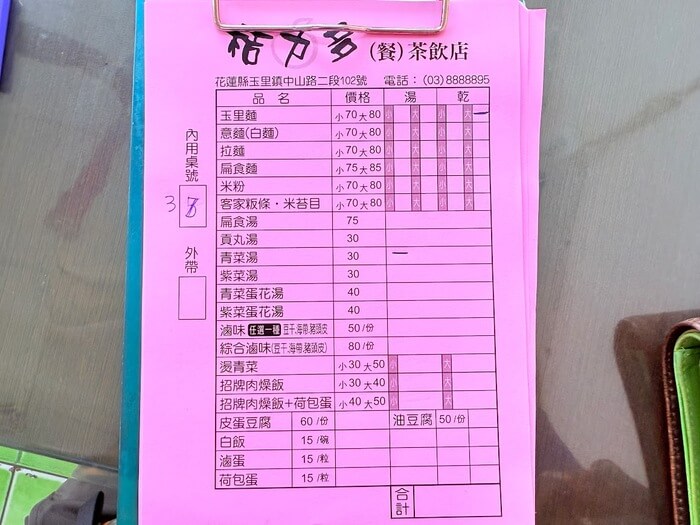 格力多(餐)茶飲店
花蓮縣玉里鎮中山路二段102號 電話：(03)8888895
內用桌號
38
外帶
品名 價格 湯 乾
玉里麵 小70大80 小 大 小 大 一
意麵(白麵) 小70大80 小 大 小 大
拉麵 小70大80 小 大 小 大
扁食麵 小75大85 小 大 小 大
米粉 小70大80 小 大 小 大
客家粄條・米苔目 小70大80 小 大 小 大
扁食湯 75
貢丸湯 30
青菜湯 30 一
紫菜湯 30
青菜蛋花湯 40
紫菜蛋花湯 40
滷味 任選一種 豆干,海帶,豬頭皮 50/份
綜合滷味(豆干,海帶,豬頭皮) 80/份
燙青菜 小30大50 小 大
招牌肉燥飯 小30大40 小 大
招牌肉燥飯+荷包蛋 小40大50 小 大
皮蛋豆腐 60/份 油豆腐 50/份
白飯 15/碗
滷蛋 15/粒
荷包蛋 15/粒
合計